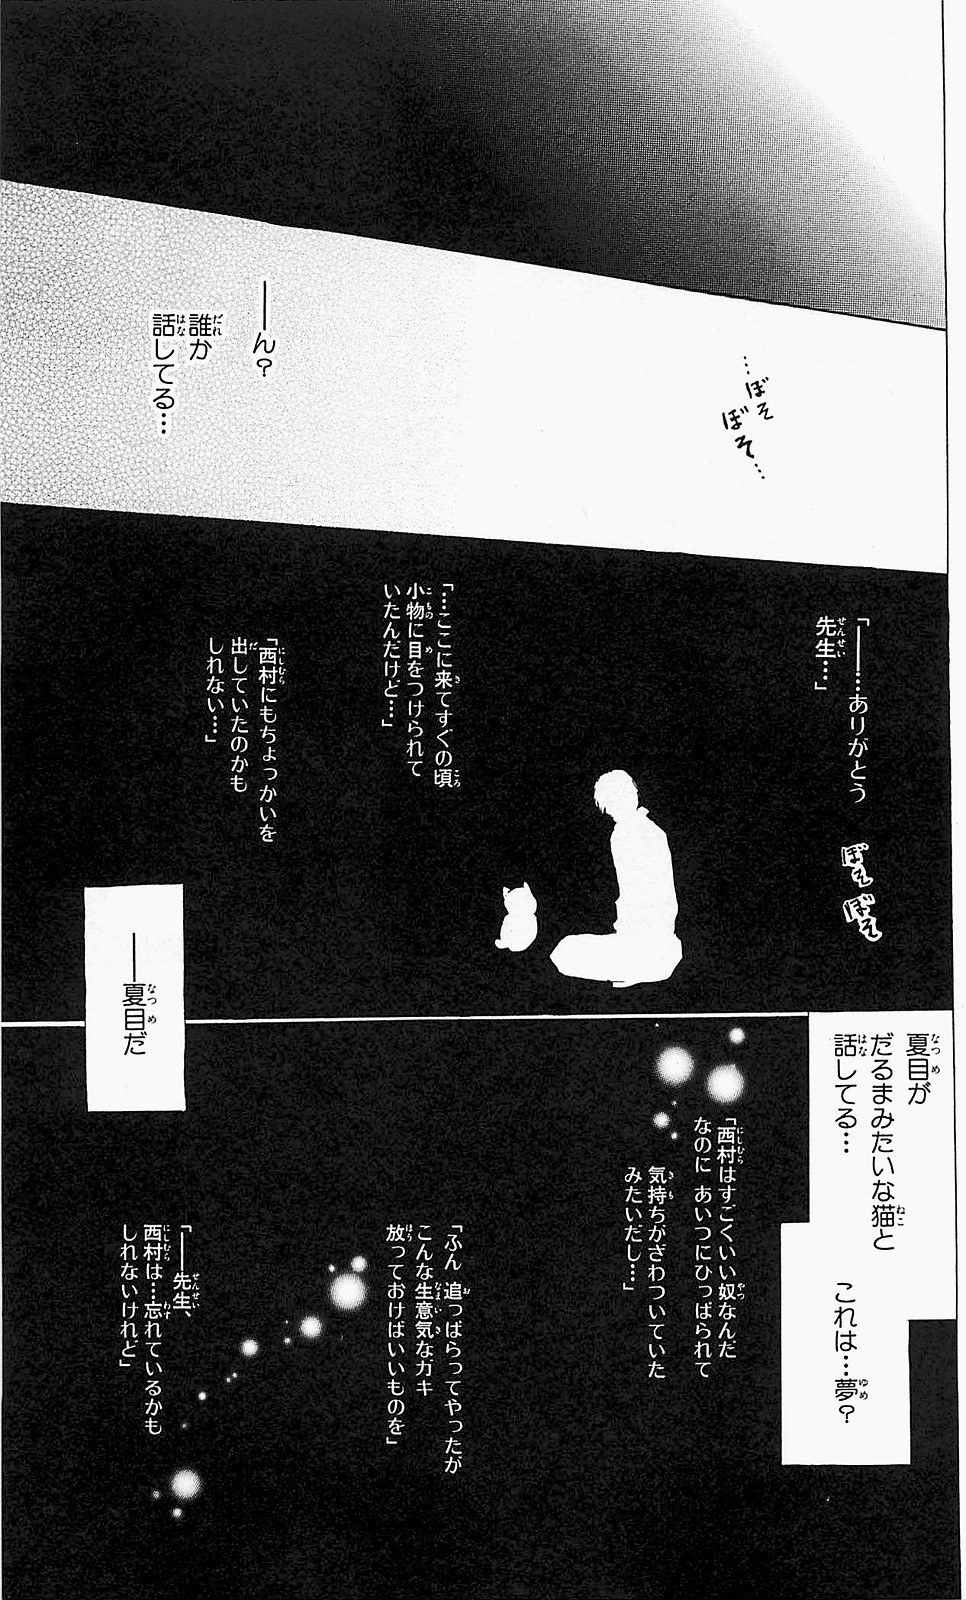 …ぼそ
ぼそ…
――ん？
誰か
話してる…
「――…ありがとう
先生…」
ぼそ
ぼそ
「…ここに来てすぐの頃
小物に目をつけられて
いたんだけど…」
「西村にもちょっかいを
出していたのかも
しれない…」
――夏目だ
夏目が
だるまみたいな猫と
話してる…
これは…夢？
「西村はすごくいい奴なんだ
なのに あいつにひっぱられて
気持ちがざわついていた
みたいだし…」
「ふん 追っぱらってやったが
こんな生意気なガキ
放っておけばいいものを」
「――先生、
西村は…忘れているかも
しれないけれど」